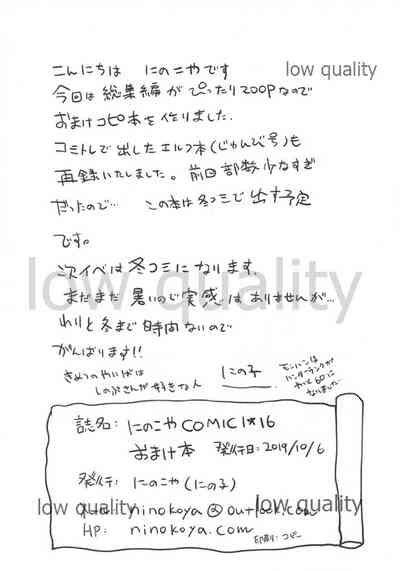 こんにちは にのこやです
low quality
今回は総集編がぴったり200Pなので
おまけコピ本を作りました.
コミトレで出したエルフ本(じゅんび号)も
再録いたしました。前回部数少なすぎ
だったので… この本は冬コミで出す予定
です。
low quality
次イベは冬コミになります.
まだまだ暑いので実感はありませんが…
わりと冬まで時間ないので
がんばります!!
きめつのやいばは
しのぶさんが好きな人
にの子
モンハンは
ハンターランクが
やっと60に
なりました
誌名: にのこやCOMIC1☆16
おまけ本 発行日: 2019/10/6
発行: にのこや(にの子)
low quality
low quality
ninokoya@outlook.com
HP: ninokoya.com
印刷: コピー